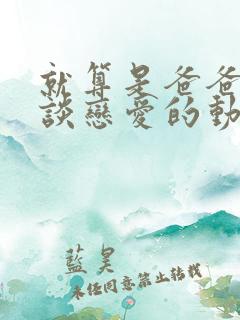 就算是爸爸
談戀愛的動
藍昊
未经同意禁止转载